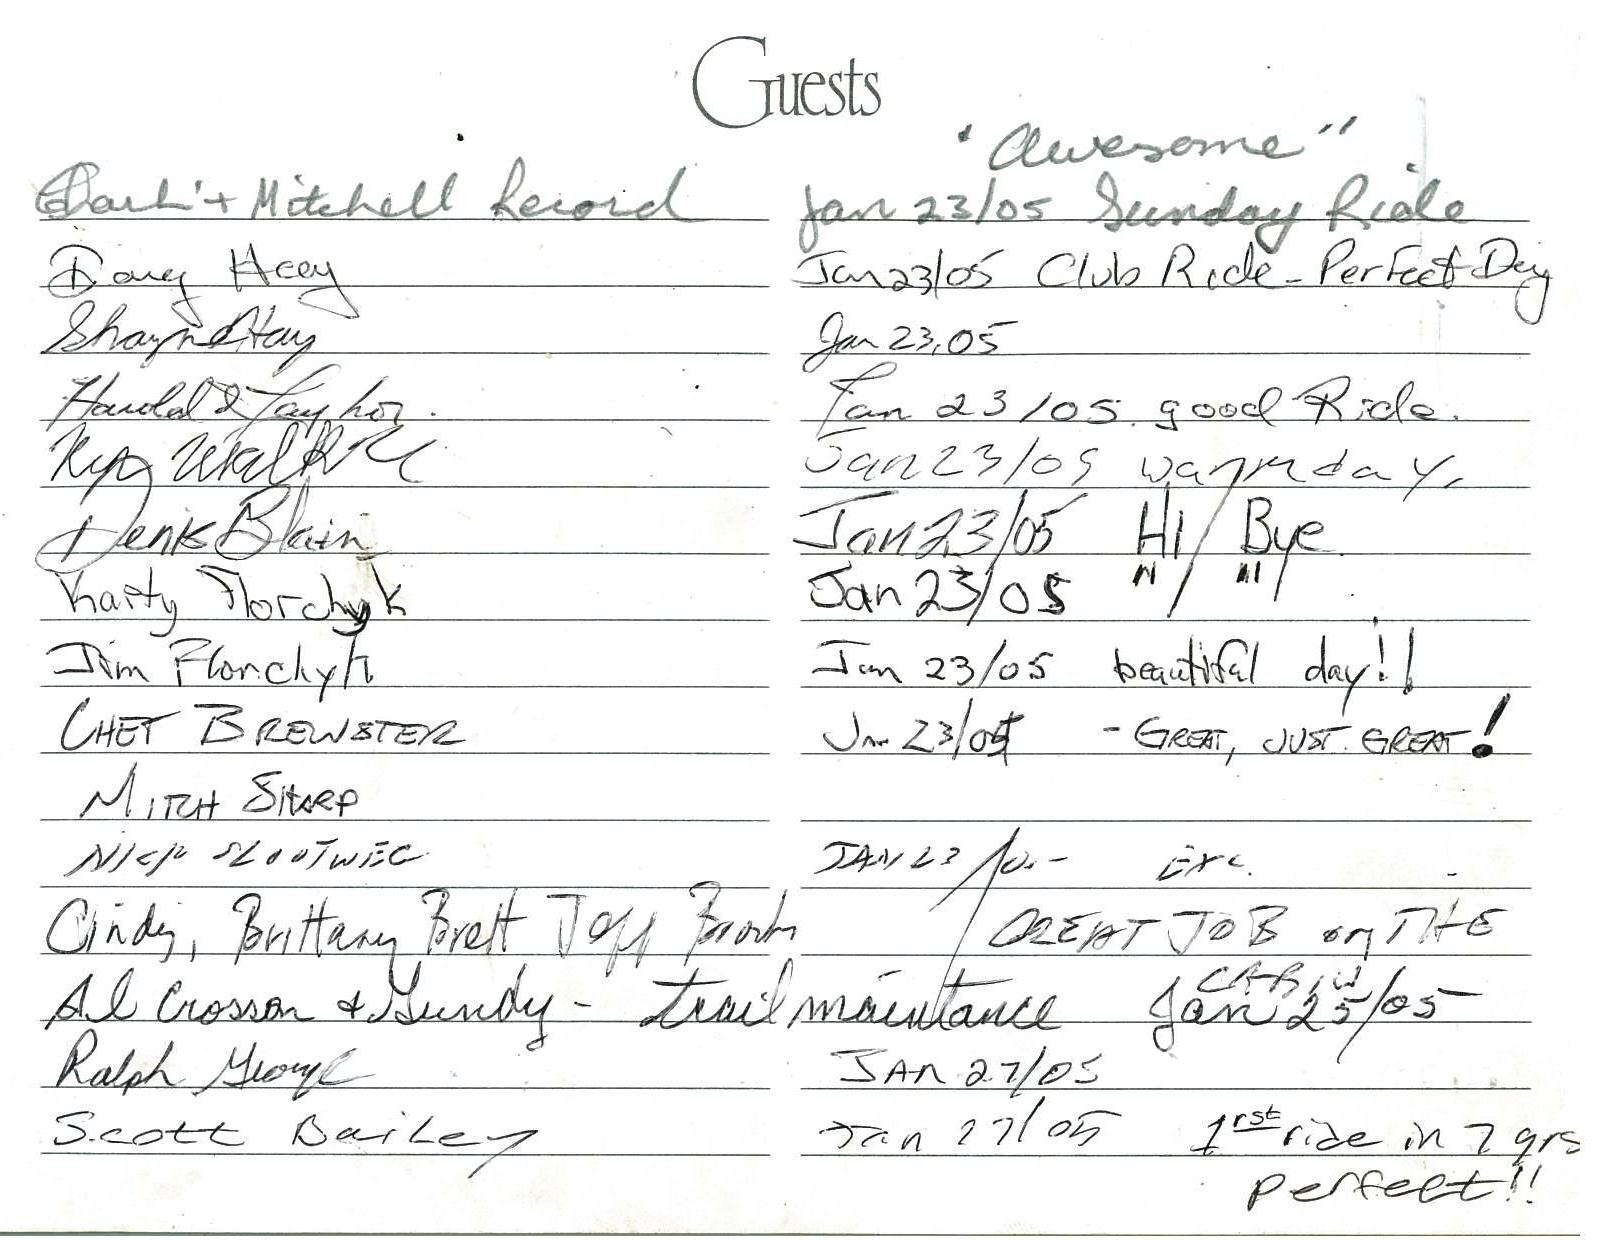 Guests
"Awesome"
+ Mitchell Record Jan 23/05 Sunday Ride
Doug Jan 23/05 Club Ride - Perfect Day
Shayne Hay Jan 23, 05
Harold & Taylor. Jan 23/05. good Ride.
Jan 23/05 warm day.
Denis Blain Jan 23/05 Hi / Bye
Karty Florchyk Jan 23/05 " / "
Jim Florchyk Jan 23/05 beautiful day!!
CHET BREWSTER Jan 23/05 - GREAT, JUST GREAT!
MITCH SHARP
NICK SLOOTWEG JAN 23/05 Exc.
Cindy, Brittany Brett Jeff GREAT JOB on THE
CABIN
Al Crosson & Gundy - trail maintance Jan 25/05
Ralph George JAN 27/05
Scott Bailey Jan 27/05 1rst ride in 7 yrs
perfect!!